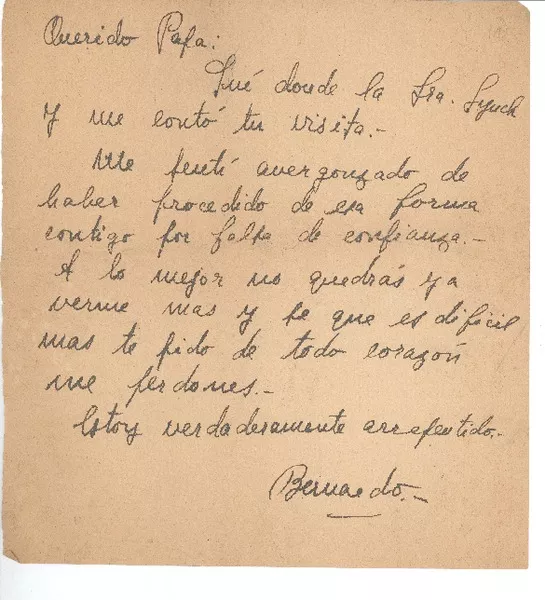 Querido Papa:
Fué donde la Sra. Lynch
Y me contó tu visita.-
Me sentí avergonzado de
haber procedido de esa forma
contigo por falta de confianza.-
A lo mejor no quedrás ya
verme mas y se que es dificil
mas te pido de todo corazón
me perdones.-
Estoy verdaderamente arrepentido.-
Bernardo.-